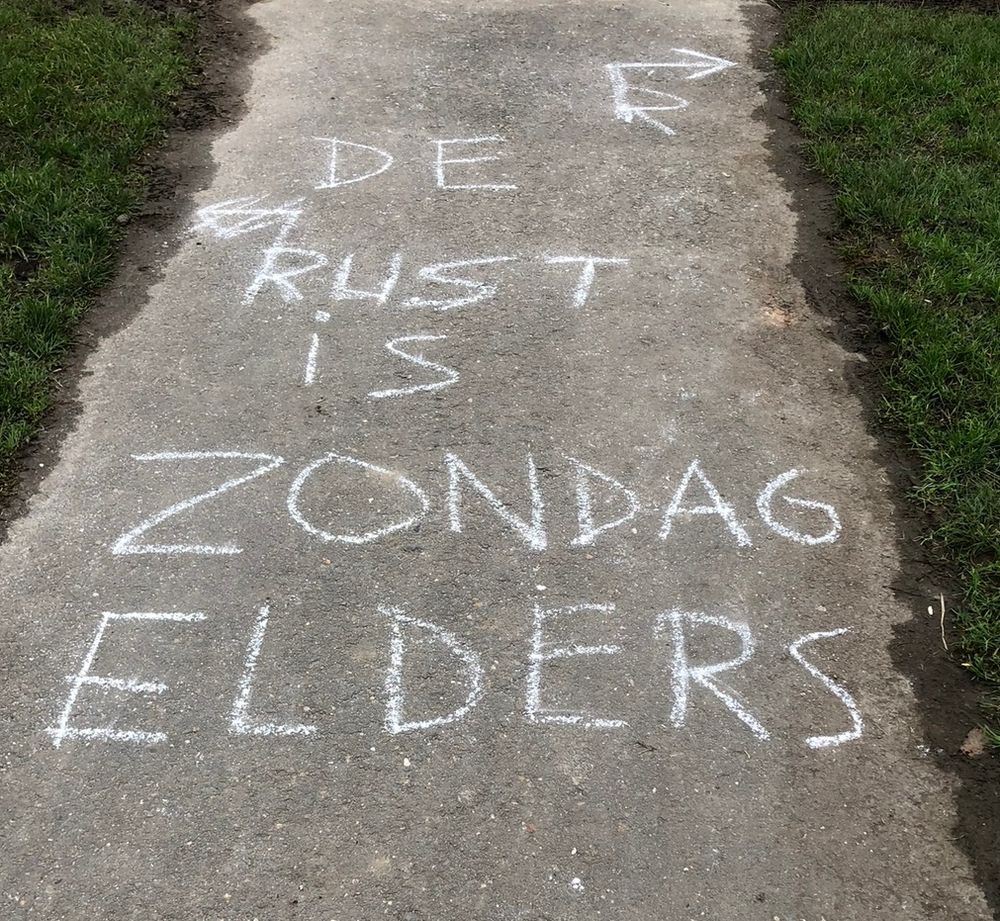 R
DE
RUST
iS
ZONDAG
ELDERS